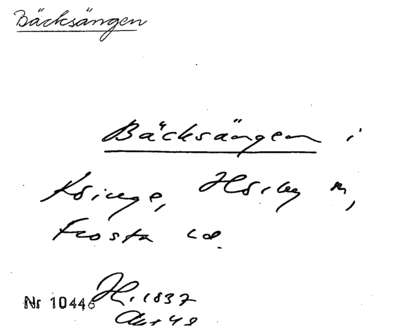 Bäcksängen
Bäcksängen i
Kxinge, Hörby n,
Frosta hd.
Nr 10446 H. 1837
Akt 48